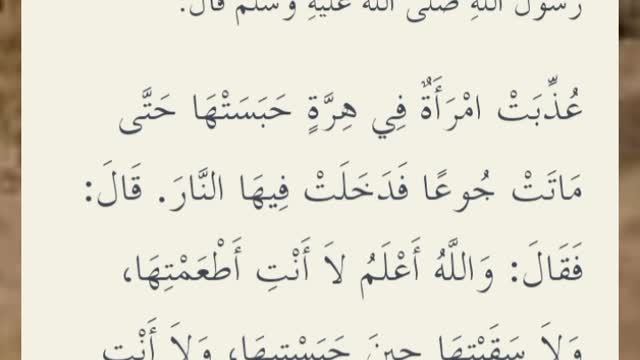 رَسُولَ اللَّهِ صَلَّى اللَّهُ عَلَيْهِ وَسَلَّمَ قَالَ:
عُذِّبَتْ امْرَأَةٌ فِي هِرَّةٍ حَبَسَتْهَا حَتَّى
مَاتَتْ جُوعًا فَدَخَلَتْ فِيهَا النَّارَ. قَالَ:
فَقَالَ: وَاللَّهُ أَعْلَمُ لاَ أَنْتِ أَطْعَمْتِهَا،
وَلاَ سَقَيْتِهَا حِينَ حَبَسْتِيهَا، وَلاَ أَنْتِ